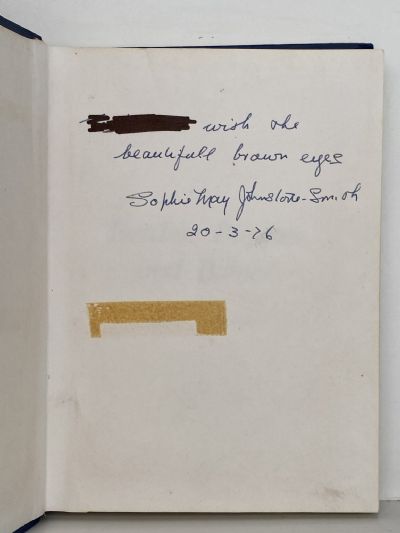 with the
beautifull brown eyes
Sophie May Johnstone-Smith
20-3-76